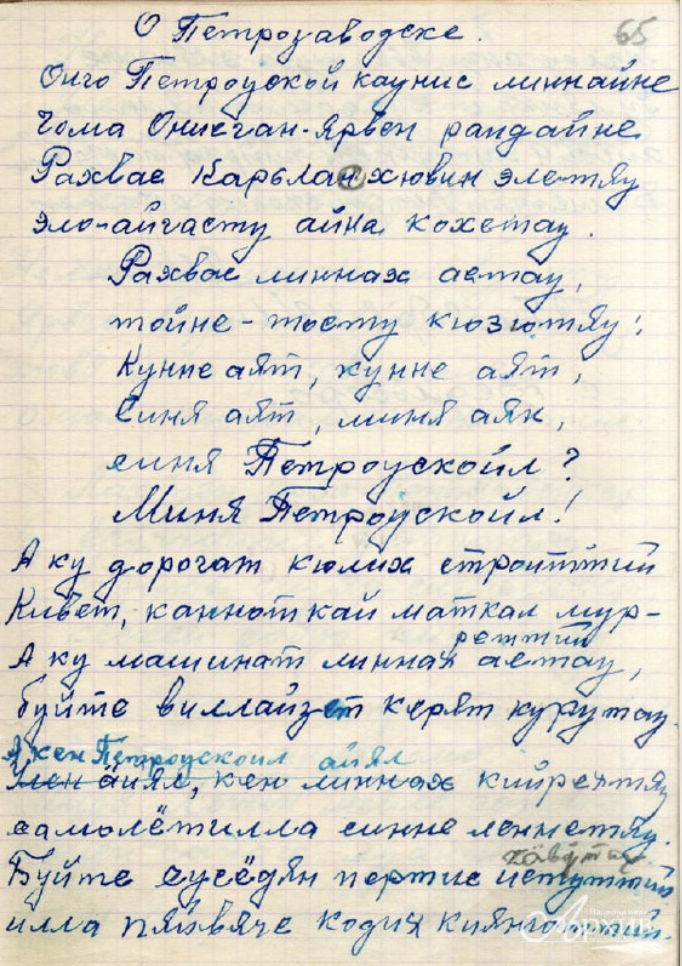 65
О Петрозаводске.
Онго Петроуской каунис линнайне
Чома Онисган-ярвен рандайне
Рахвас Карьлан хювин элетяу
эло-айгасту айна кохетау.
Рахвас линнах астау,
тойне-тосту кюзютяу:
Кунне аят, кунне аят,
Синя аят, миня аян,
синя Петроускойл?
Миня Петроускойл!
А ку дорогат кюлих строиттий
Кивет, каннот кай маткал мур-
реттий
А ку машинат линнах астау,
буйте виллайзет керят курутау.
А кен Петроускоил айял
аиял, кен линнах кийрехтяу
самолётилла синне леннетяу.
Буйте сусёдян пертис истуттий
илла пяйвяче кодих
Архив